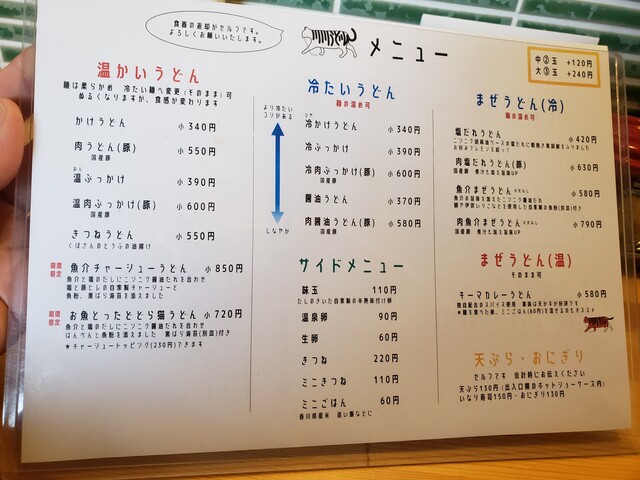 食器の返却がセルフです。
よろしくお願いいたします。
メニュー
中②玉 +120円
大③玉 +240円
温かいうどん
麺は柔らかめ 冷たい麺へ変更(そのまま)可
ぬるくなりますが、食感が変わります
かけうどん 小340円
肉うどん(豚) 小550円
国産豚
温ぶっかけ 小390円
温肉ぶっかけ(豚) 小600円
国産豚
きつねうどん 小550円
くぼさんのとうふの油揚げ
期間限定 魚介チャーシューうどん 小850円
魚介と鶏のだしにニンニク醤油だれを合わせ
塩と豚ヒレの自家製チャーシューと
魚粉、黒ばら海苔を添えました
期間限定 お魚とったどとら猫うどん 小720円
魚介と鶏のだしにニンニク醤油だれを合わせ
はんぺんと魚粉を添えました 黒ばら海苔(別皿)付き
★チャーシュートッピング(230円)できます
冷たいうどん
麺の温め可
より冷たい
コリがある
しなやか
冷かけうどん 小340円
冷ぶっかけ 小390円
冷肉ぶっかけ(豚) 小600円
国産豚
醤油うどん 小370円
肉醤油うどん(豚) 小580円
国産豚
サイドメニュー
味玉 110円
だしのきいた自家製の半熟味付け卵
温泉卵 90円
生卵 60円
きつね 220円
ミニきつね 110円
ミニごはん 60円
香川県産米 追い飯などに
まぜうどん(冷)
麺の温め可
塩だれうどん 小420円
肉塩だれうどん(豚) 小630円
国産豚 煮汁も加え旨味UP
魚介まぜうどん 小580円
肉魚介まぜうどん 小790円
国産豚 煮汁も加え旨味UP
まぜうどん(温)
そのまま可
キーマカレーうどん 小580円
独自配合のスパイス使用 薬味は天かすが好評です
*麺を食べた後、ミニごはん(60円)を混ぜるのもオススメ
天ぷら・おにぎり
セルフです 会計時にお伝えください
天ぷら130円(出入口横のホットショーケース内)
いなり寿司150円・おにぎり130円